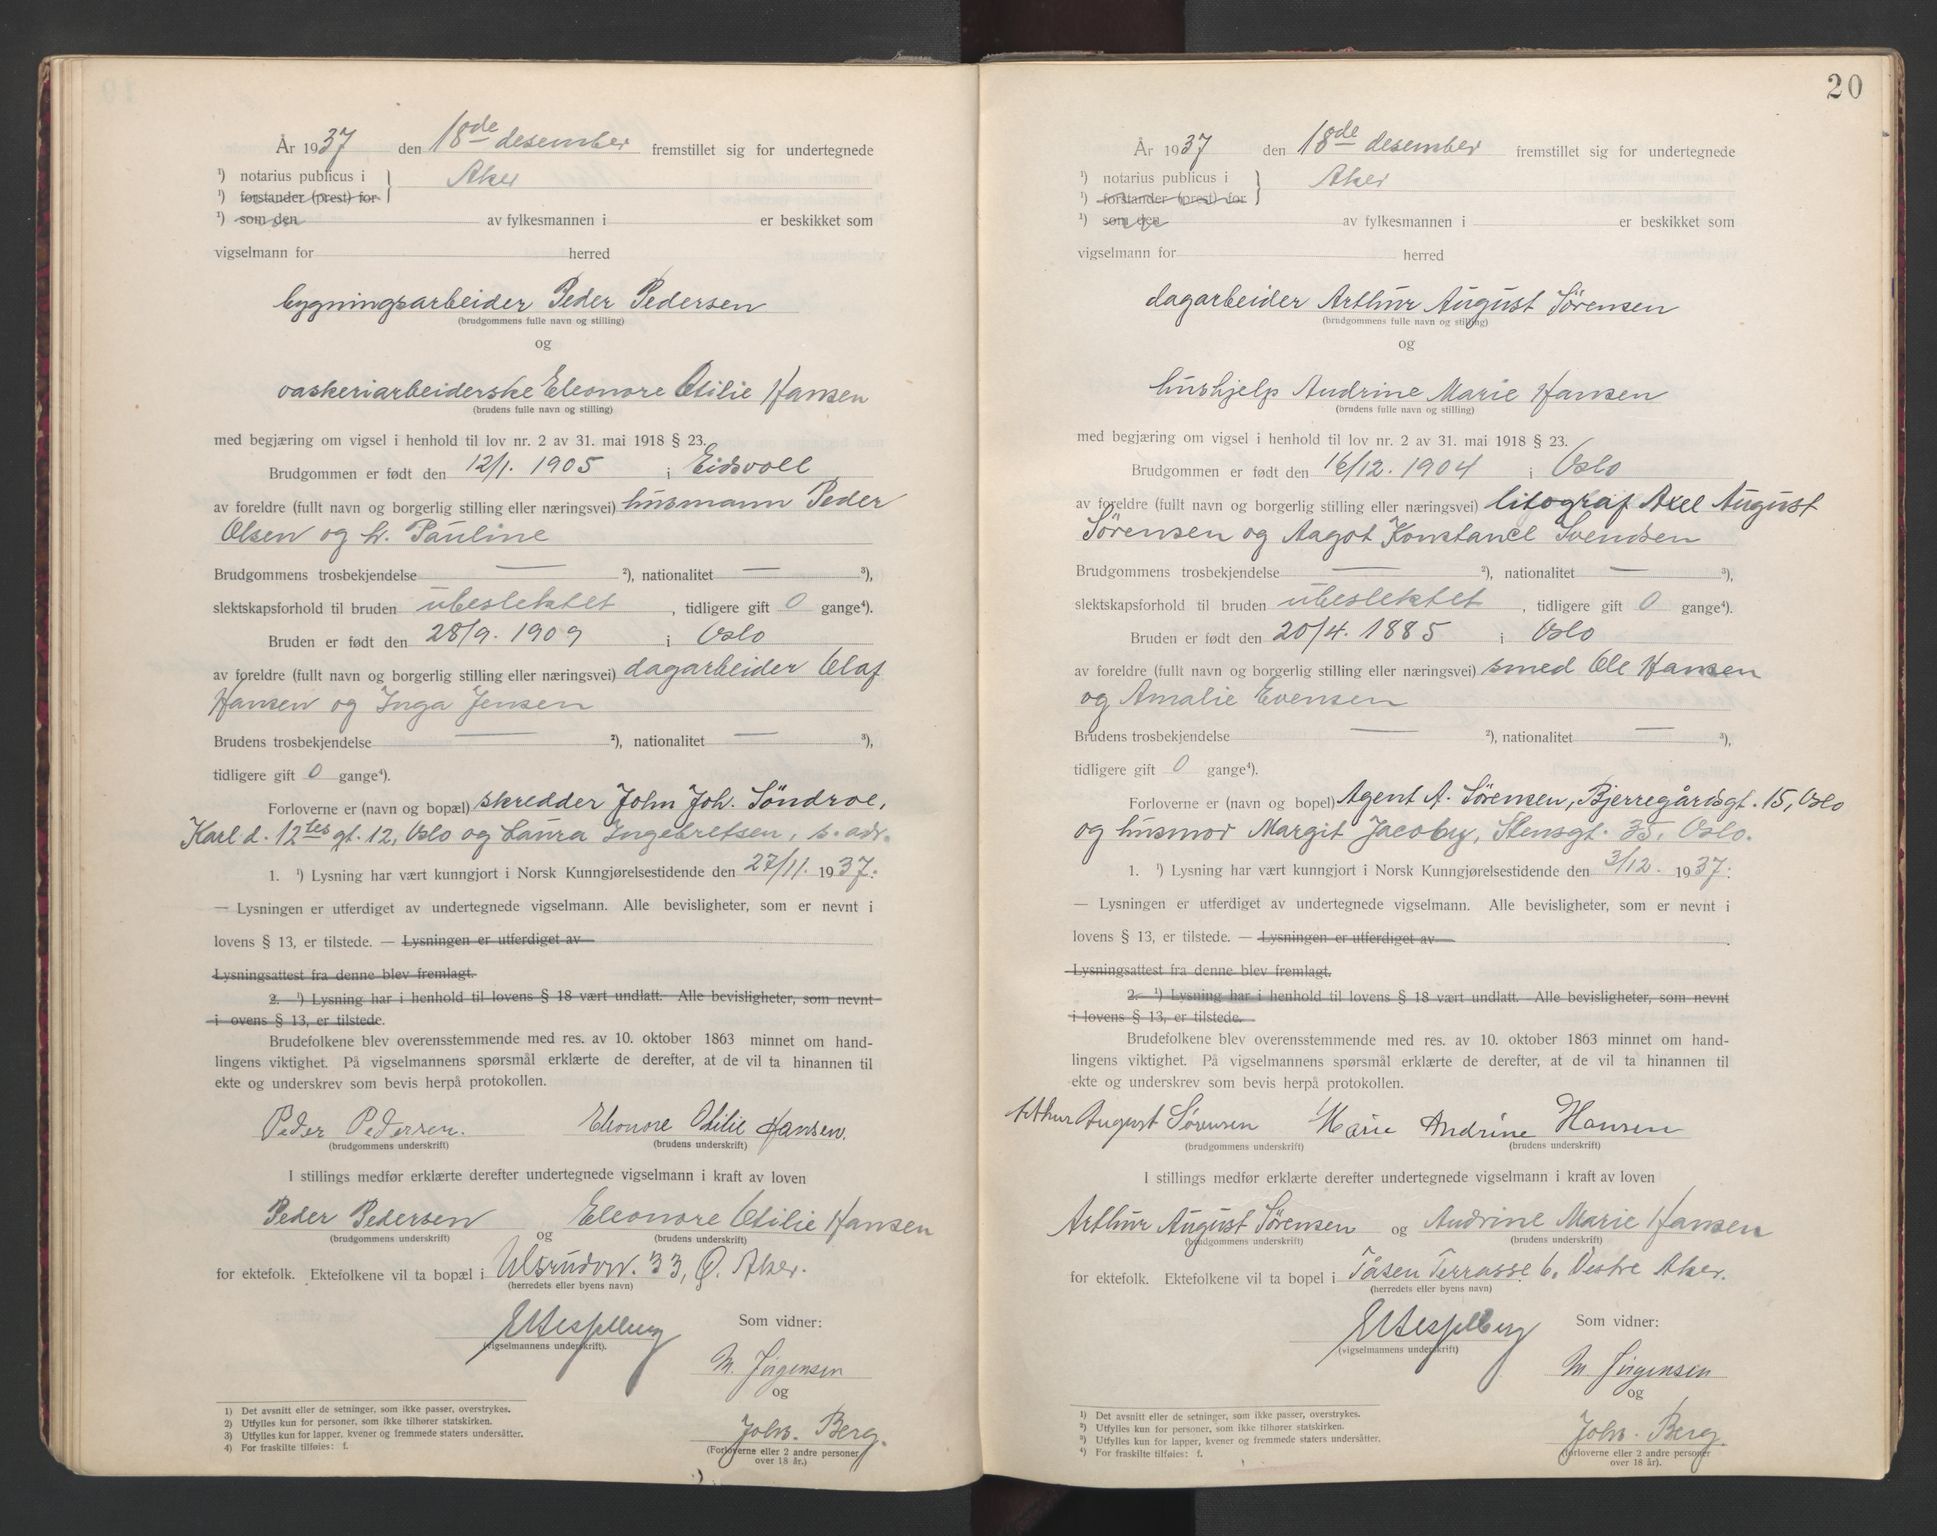 År 1937 den 18de desember fremstillet sig for undertegnede
¹) notarius publicus i } Aker
¹) forstander (prest) for
¹) som den av fylkesmannen i er beskikket som
vigselmann for herred
bygningsarbeider Peder Pedersen
(brudgommens fulle navn og stilling)
og
vaskeriarbeiderske Eleonore Otilie Hansen
(brudens fulle navn og stilling)
med begjæring om vigsel i henhold til lov nr. 2 av 31. mai 1918 § 23.
Brudgommen er født den 12/1. 1905 i Eidsvoll
av foreldre (fullt navn og borgerlig stilling eller næringsvei) husmann Peder
Olsen og h. Pauline
Brudgommens trosbekjendelse — ²), nationalitet — ³),
slektskapsforhold til bruden ubeslektet, tidligere gift 0 gange⁴).
Bruden er født den 28/9. 1909 i Oslo
av foreldre (fullt navn og borgerlig stilling eller næringsvei) dagarbeider Olaf
Hansen og Inga Jensen
Brudens trosbekjendelse — ²), nationalitet — ³),
tidligere gift 0 gange⁴).
Forloverne er (navn og bopæl) skredder John Joh. Söndroe,
Karl d. 12tes gt. 12, Oslo og Laura Ingebretsen, s. adr.
1. ¹) Lysning har vært kunngjort i Norsk Kunngjørelsestidende den 27/11. 1937:
— Lysningen er utferdiget av undertegnede vigselmann. Alle bevisligheter, som er nevnt i
lovens § 13, er tilstede. — Lysningen er utferdiget av
Lysningsattest fra denne blev fremlagt.
2. ¹) Lysning har i henhold til lovens § 18 vært undlatt. Alle bevisligheter, som nevnt
i ovens § 13, er tilstede.
Brudefolkene blev overensstemmende med res. av 10. oktober 1863 minnet om hand-
lingens viktighet. På vigselmannens spørsmål erklærte de derefter, at de vil ta hinannen til
ekte og underskrev som bevis herpå protokollen.
Peder Pedersen. Eleonore Otilie Hansen.
(brudgommens underskrift) (brudens underskrift)
I stillings medfør erklærte derefter undertegnede vigselmann i kraft av loven
Peder Pedersen og Eleonore Otilie Hansen
(brudgommens underskrift) (brudens underskrift)
for ektefolk. Ektefolkene vil ta bopæl i Ulsrudvn. 33, Ø. Aker.
(herredets eller byens navn)
Som vidner:
(vigselmannens underskrift).
M. Jörgensen
og
Johs. Berg.
(Forloverne eller 2 andre personer
over 18 år.)
1) Det avsnitt eller de setninger, som ikke passer, overstrykes.
2) Utfylles kun for personer, som ikke tilhører statskirken.
3) Utfylles kun for lapper, kvener og fremmede staters undersåtter.
4) For fraskilte tilføies: f.
20
År 1937 den 18de desember fremstillet sig for undertegnede
¹) notarius publicus i } Aker
¹) forstander (prest) for
¹) som den av fylkesmannen i er beskikket som
vigselmann for herred
dagarbeider Arthur August Sørensen
(brudgommens fulle navn og stilling)
og
hushjelp Andrine Marie Hansen
(brudens fulle navn og stilling)
med begjæring om vigsel i henhold til lov nr. 2 av 31. mai 1918 § 23.
Brudgommen er født den 16/12. 1904 i Oslo
av foreldre (fullt navn og borgerlig stilling eller næringsvei) litograf Axel August
Sørensen og Aagot Konstance Svendsen
Brudgommens trosbekjendelse — ²), nationalitet — ³),
slektskapsforhold til bruden ubeslektet, tidligere gift 0 gange⁴).
Bruden er født den 20/4. 1885 i Oslo
av foreldre (fullt navn og borgerlig stilling eller næringsvei) smed Ole Hansen
og Amalie Evensen
Brudens trosbekjendelse — ²), nationalitet — ³),
tidligere gift 0 gange⁴).
Forloverne er (navn og bopel) Agent A. Sørensen, Bjerregårdsgt. 15, Oslo
og husmor Margit Jacoby, Stensgt. 35, Oslo.
1. ¹) Lysning har vært kunngjort i Norsk Kunngjørelsestidende den 3/12. 1937:
— Lysningen er utferdiget av undertegnede vigselmann. Alle bevisligheter, som er nevnt i
lovens § 13, er tilstede. — Lysningen er utferdiget av
Lysningsattest fra denne blev fremlagt.
2. ¹) Lysning har i henhold til lovens § 18 vært undlatt. Alle bevisligheter, som nevnt
i lovens § 13, er tilstede.
Brudefolkene blev overensstemmende med res. av 10. oktober 1863 minnet om hand-
lingens viktighet. På vigselmannens spørsmål erklærte de derefter, at de vil ta hinannen til
ekte og underskrev som bevis herpå protokollen.
Arthur August Sørensen Marie Andrine Hansen
(brudgommens underskrift) (brudens underskrift)
I stillings medfør erklærte derefter undertegnede vigselmann i kraft av loven
Arthur August Sørensen og Andrine Marie Hansen
(brudgommens underskrift) (brudens underskrift)
for ektefolk. Ektefolkene vil ta bopel i Tåsen Terrasse 6, Vestre Aker.
(herredets eller byens navn)
Som vidner:
(vigselmannens underskrift)
M. Jörgensen
og
Johs. Berg.
(forloverne eller 2 andre personer
over 18 år).
¹) Det avsnitt eller de setninger, som ikke passer, overstrykes.
²) Utfylles kun for personer, som ikke tilhører statskirken.
³) Utfylles kun for lapper, kvener og fremmede staters undersåtter.
⁴) For fraskilte tilføies: f.